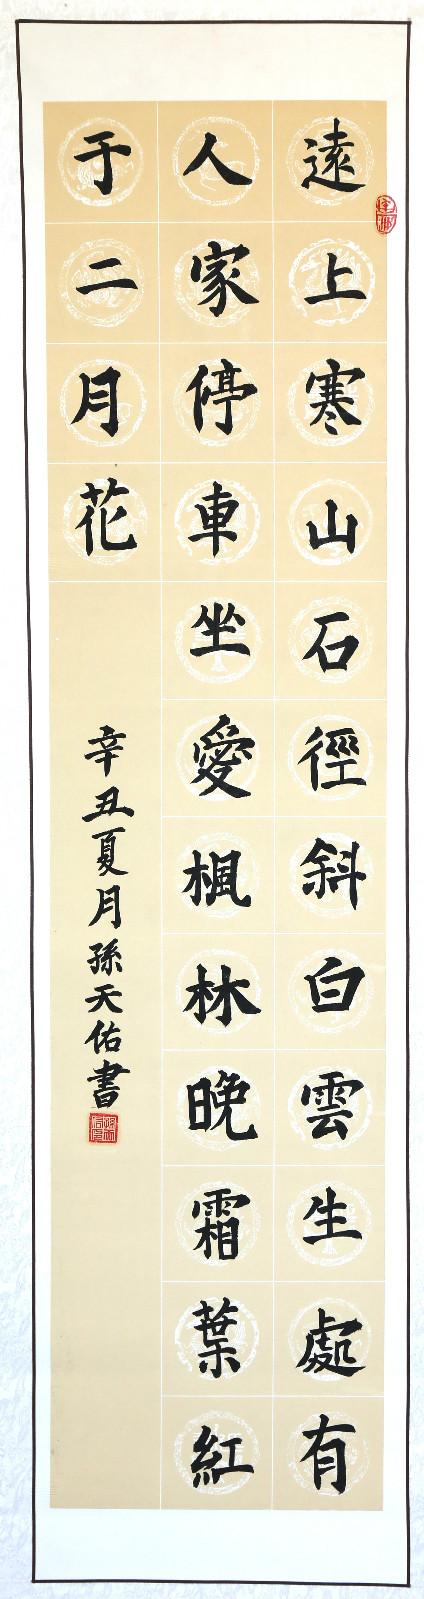 遠上寒山石徑斜白雲生處有
人家停車坐愛楓林晚霜葉紅
于二月花
辛丑夏月孫天佑書